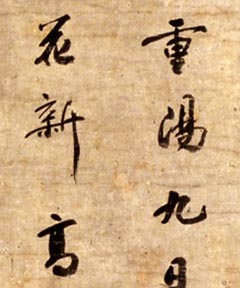 重陽九日
花新高